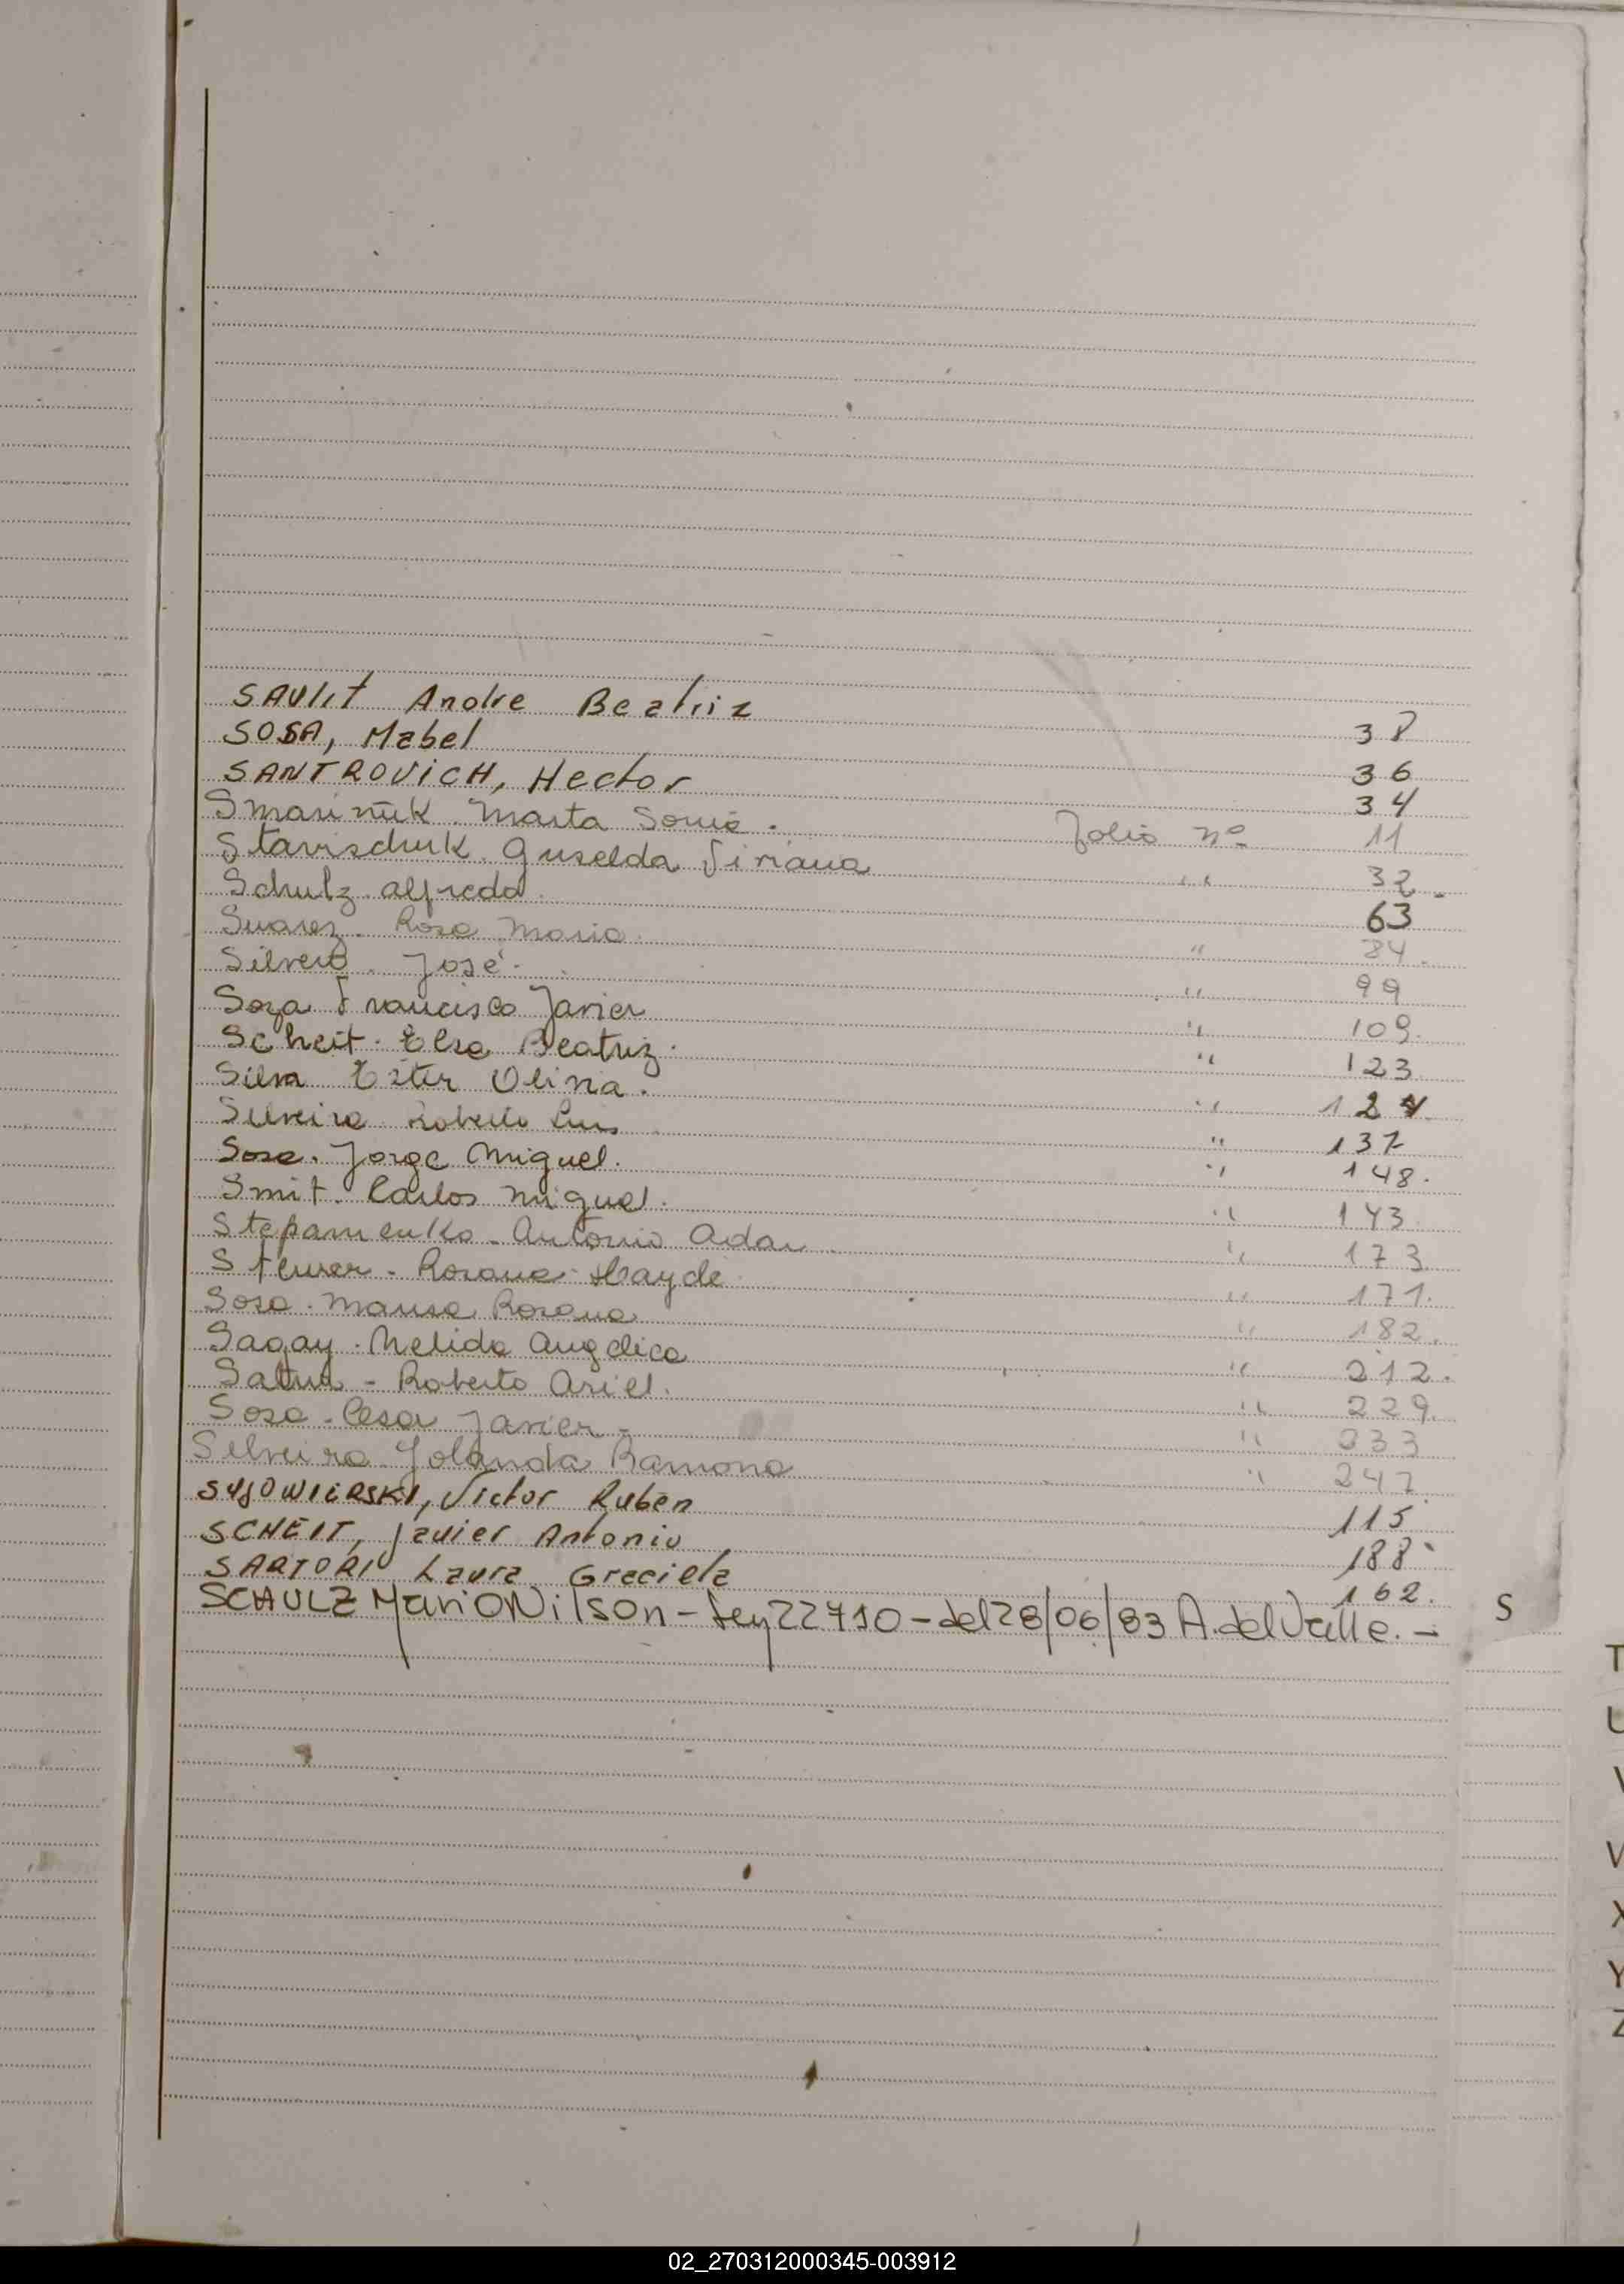 SAVLIT Andre Beatriz 38
SOSA, Mabel 36
SANTROVICH, Hector 34
Smariñuk. Marta Sonia. Folio nº 11
Stavischuk. Griselda Viviana " 32.
Schulz. alfredo. 63
Suarez. Rosa Maria. " 84.
Silvero. José. " 99
Soza Francisco Javier " 109.
Scheit. Elsa Beatriz. " 123
Silva Ester Olivia. " 127.
Silveira Roberto Luis " 137
Sosa. Jorge Miguel. " 148.
Smit. Carlos Miguel. " 143
Stepanienko. Antonio Adan " 173
Steurer - Rosana Hayde " 171.
Sosa. Marisa Rosana " 182.
Sagay. Nelida Angelica " 212.
Satur - Roberto Ariel. " 229.
Soso. Cesar Javier - " 233
Silveira Yolanda Ramona " 247
SYSOWIERSKI, Victor Ruben 115
SCHEIT, Javier Antonio 188
SARTORI Laura Graciela 162.
SCHULZ Mario Nilson - Ley 22410 - del 28/06/83 A. del Valle. -
S
T
U
V
X
Y
Z
02_270312000345-003912